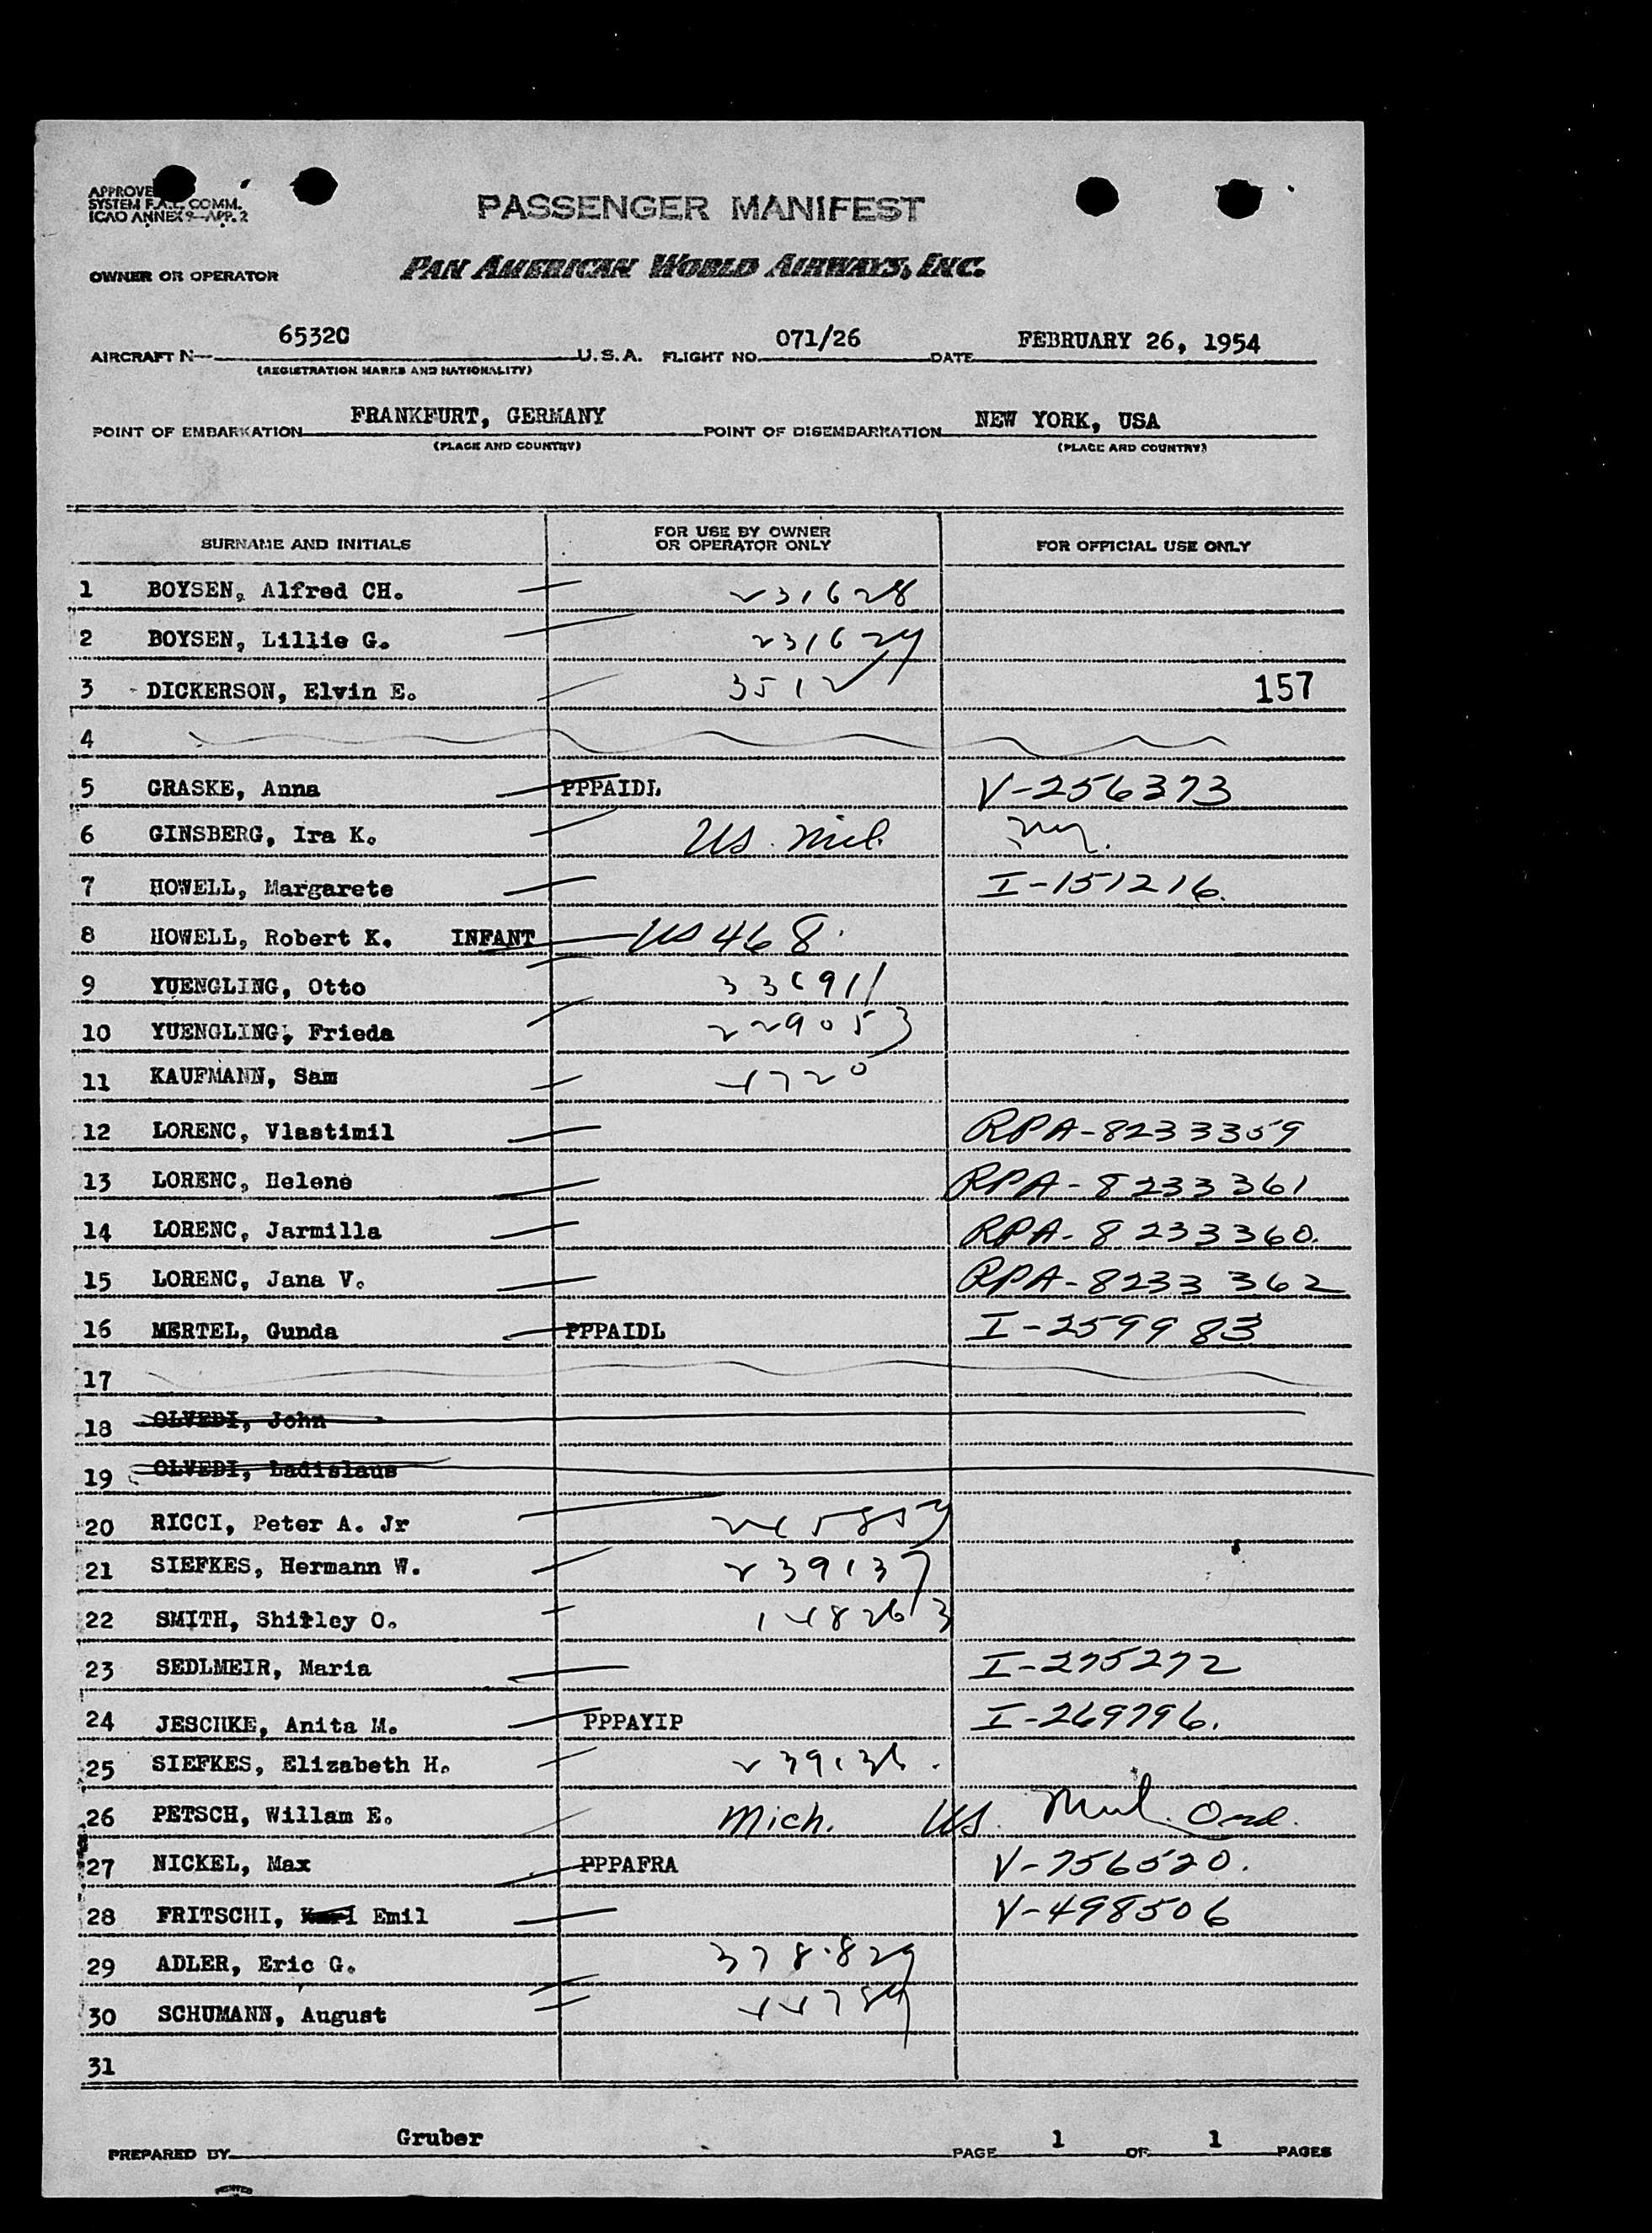 APPROVE
SYSTEM F.A.L. COMM.
ICAO ANNEX 9—APP. 2
PASSENGER MANIFEST
OWNER OR OPERATOR PAN AMERICAN WORLD AIRWAYS, INC.
AIRCRAFT N— 6532C U.S.A. FLIGHT NO. 071/26 DATE FEBRUARY 26, 1954
(REGISTRATION MARKS AND NATIONALITY)
POINT OF EMBARKATION FRANKFURT, GERMANY POINT OF DISEMBARKATION NEW YORK, USA
(PLACE AND COUNTRY) (PLACE AND COUNTRY)
SURNAME AND INITIALS FOR USE BY OWNER OR OPERATOR ONLY FOR OFFICIAL USE ONLY
1 BOYSEN, Alfred CH. 231628
2 BOYSEN, Lillie G. 231629
3 DICKERSON, Elvin E. 3512 157
4
5 GRASKE, Anna PPPAIDL V-256373
6 GINSBERG, Ira K. US. Mil.
7 HOWELL, Margarete I-151216.
8 HOWELL, Robert K. INFANT US 468
9 YUENGLING, Otto 336911
10 YUENGLING, Frieda 229053
11 KAUFMANN, Sam 4720
12 LORENC, Vlastimil RPA-8233359
13 LORENC, Helene RPA-8233361
14 LORENC, Jarmilla RPA-8233360.
15 LORENC, Jana V. RPA-8233362
16 MERTEL, Gunda PPPAIDL I-259983
17
18 OLVEDI, John
19 OLVEDI, Ladislaus
20 RICCI, Peter A. Jr
21 SIEFKES, Hermann W. 239137
22 SMITH, Shirley O. 148263
23 SEDLMEIR, Maria I-275272
24 JESCHKE, Anita M. PPPAYIP I-269796.
25 SIEFKES, Elizabeth H. 239136.
26 PETSCH, Willam E. Mich. US. Mil. Ord.
27 NICKEL, Max PPPAFRA V-756520.
28 FRITSCHI, Karl Emil V-498506
29 ADLER, Eric G. 378829
30 SCHUMANN, August 44789
31
PREPARED BY Gruber PAGE 1 OF 1 PAGES